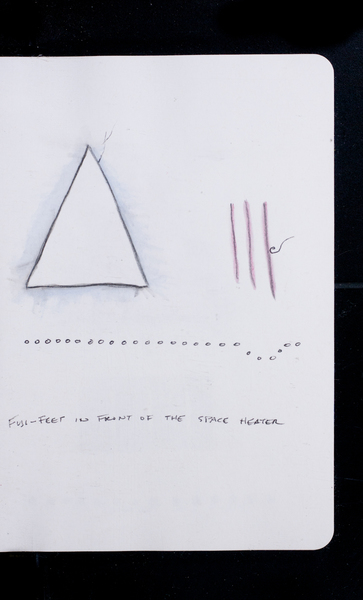 FUJI-FEET IN FRONT OF THE SPACE HEATER